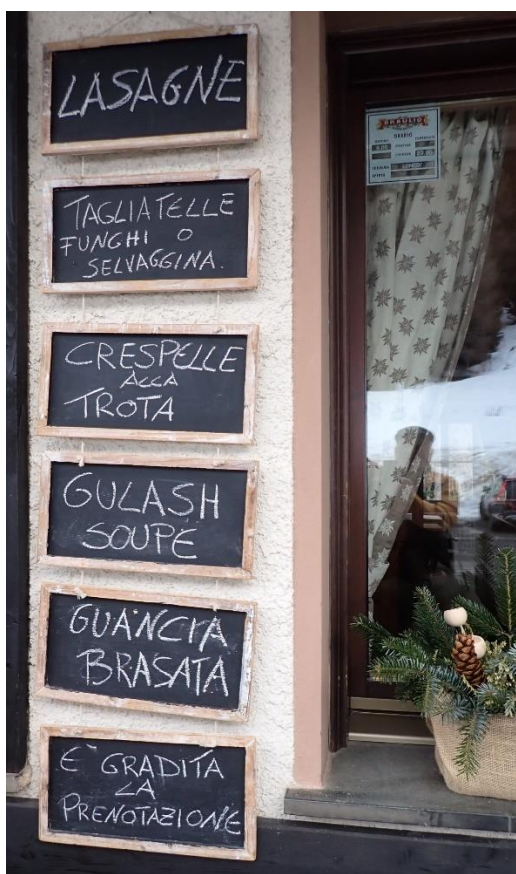 LASAGNE
TAGLIATELLE
FUNGHI O
SELVAGGINA
CRESPELLE
ALLA
TROTA
GULASH
SOUPE
GUANCIA
BRASATA
E' GRADITA
LA
PRENOTAZIONE
BRAULIO
ORARIO